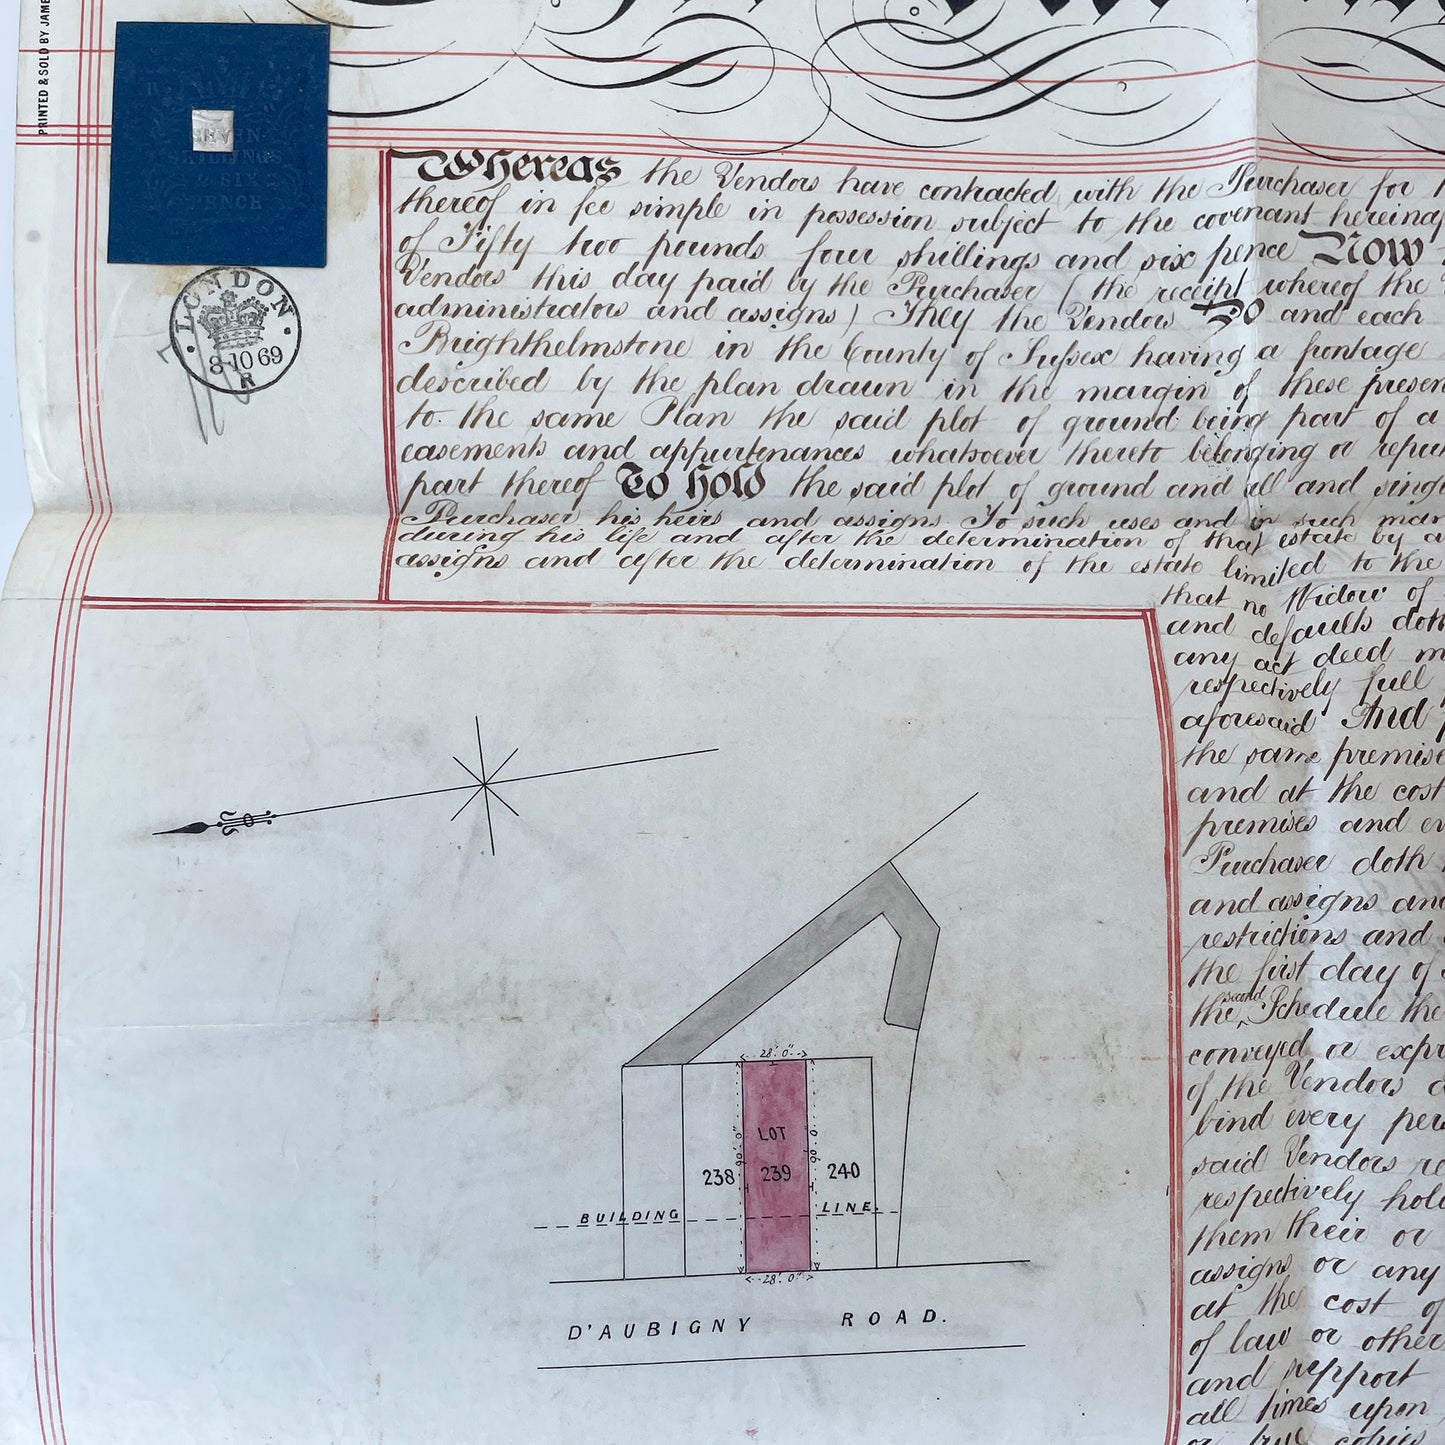 PRINTED & SOLD BY JAME
SHILLINGS
& SIX
PENCE
LONDON
8·10 69
R
Whereas the Vendors have contracted with the Purchaser for
thereof in fee simple in possession subject to the covenant hereinaf
of Fifty two pounds four shillings and six pence Now
Vendors this day paid by the Purchaser (the receipt whereof the
administrators and assigns) They the Vendors Do and each
Brighthelmstone in the County of Sussex having a frontage
described by the plan drawn in the margin of these presen
to the same Plan the said plot of ground being part of a
easements and appurtenances whatsoever thereto belonging or repu
part thereof To hold the said plot of ground and all and singu
Purchaser his heirs and assigns To such uses and in such man
during his life and after the determination of that estate by a
assigns and after the determination of the estate limited to the
that no Widow of
and defaults doth
any act deed m
respectively full
aforesaid And
the same premise
and at the cost
premises and ev
Purchaser doth
and assigns and
restrictions and
the first day of
the second Schedule the
conveyed or expr
of the Vendors
bind every per
said Vendors re
respectively hol
them their or
assigns or any
at the cost of
of law or other
and support
all times upon
or true copies
28'. 0"
90'. 0"
90'. 0"
LOT
238 239 240
BUILDING LINE.
28'. 0"
D'AUBIGNY ROAD.